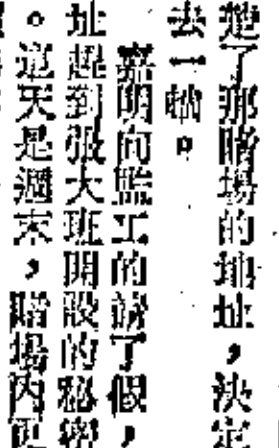 楚了那賭場的地址，決定
去一。
嘉明向監工的請了假，
址趕到張大班開設的秘密
。這天是週末，賭場內更